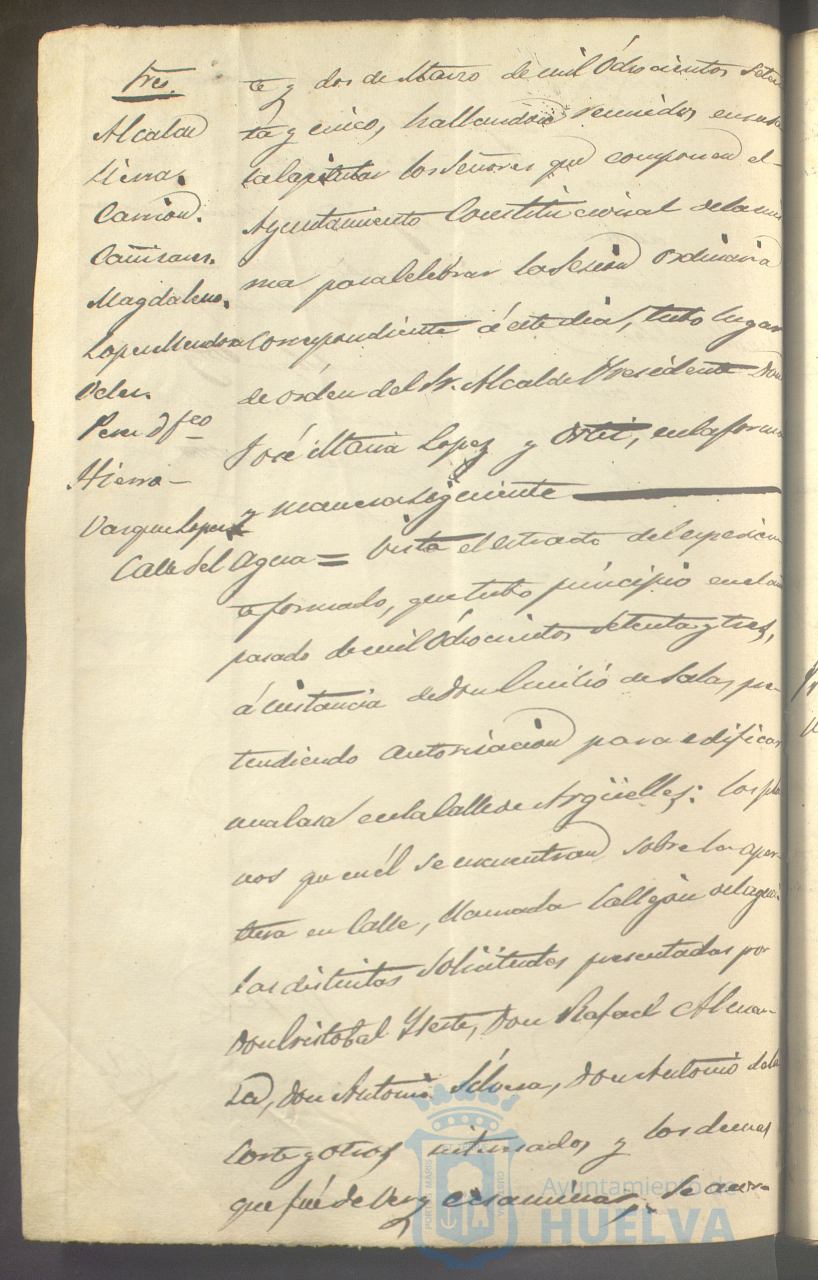 Sres.
Alcalde
Sierra.
Carrion.
Cañizares.
Magdaleno.
Lopez Mendoza
Perez D. fco
Hierro
Vazquez Lopez
te y dos de Marzo de mil Ochocientos Seten
ta y cinco, hallandose reunidos en su
sala pitular los Señores que componen el
Ayuntamiento Constitucional de la mis
ma para celebrar la Sesion Ordinaria
correspondiente á este dia, tubo lugar
de orden del Sr. Alcalde Presidente Don
José Maria Lopez y Ortiz, en la forma
y manera siguiente
Calle del Agua = Vista el estracto del espedien
te formado, que tubo principio en el año
pasado de mil Ochocientos Setenta y tres,
á instancia de Don Emilio de Salas, pre
tendiendo autorisacion para edificar
una Casa en la Calle de Argüelles: los pla
nos que en él se encuentran sobre la aper
tura en Calle, llamada Callejon del agua:
las distintas Solicitudes presentadas por
Don Cristobal Yeste, Don Rafael Alman
za, Don Antonio Silvera, Don Antonio de la
Corte y otros interesados, y los demas
que fué de ver y ecsaminar, Se acor
Ayuntamiento de
HUELVA